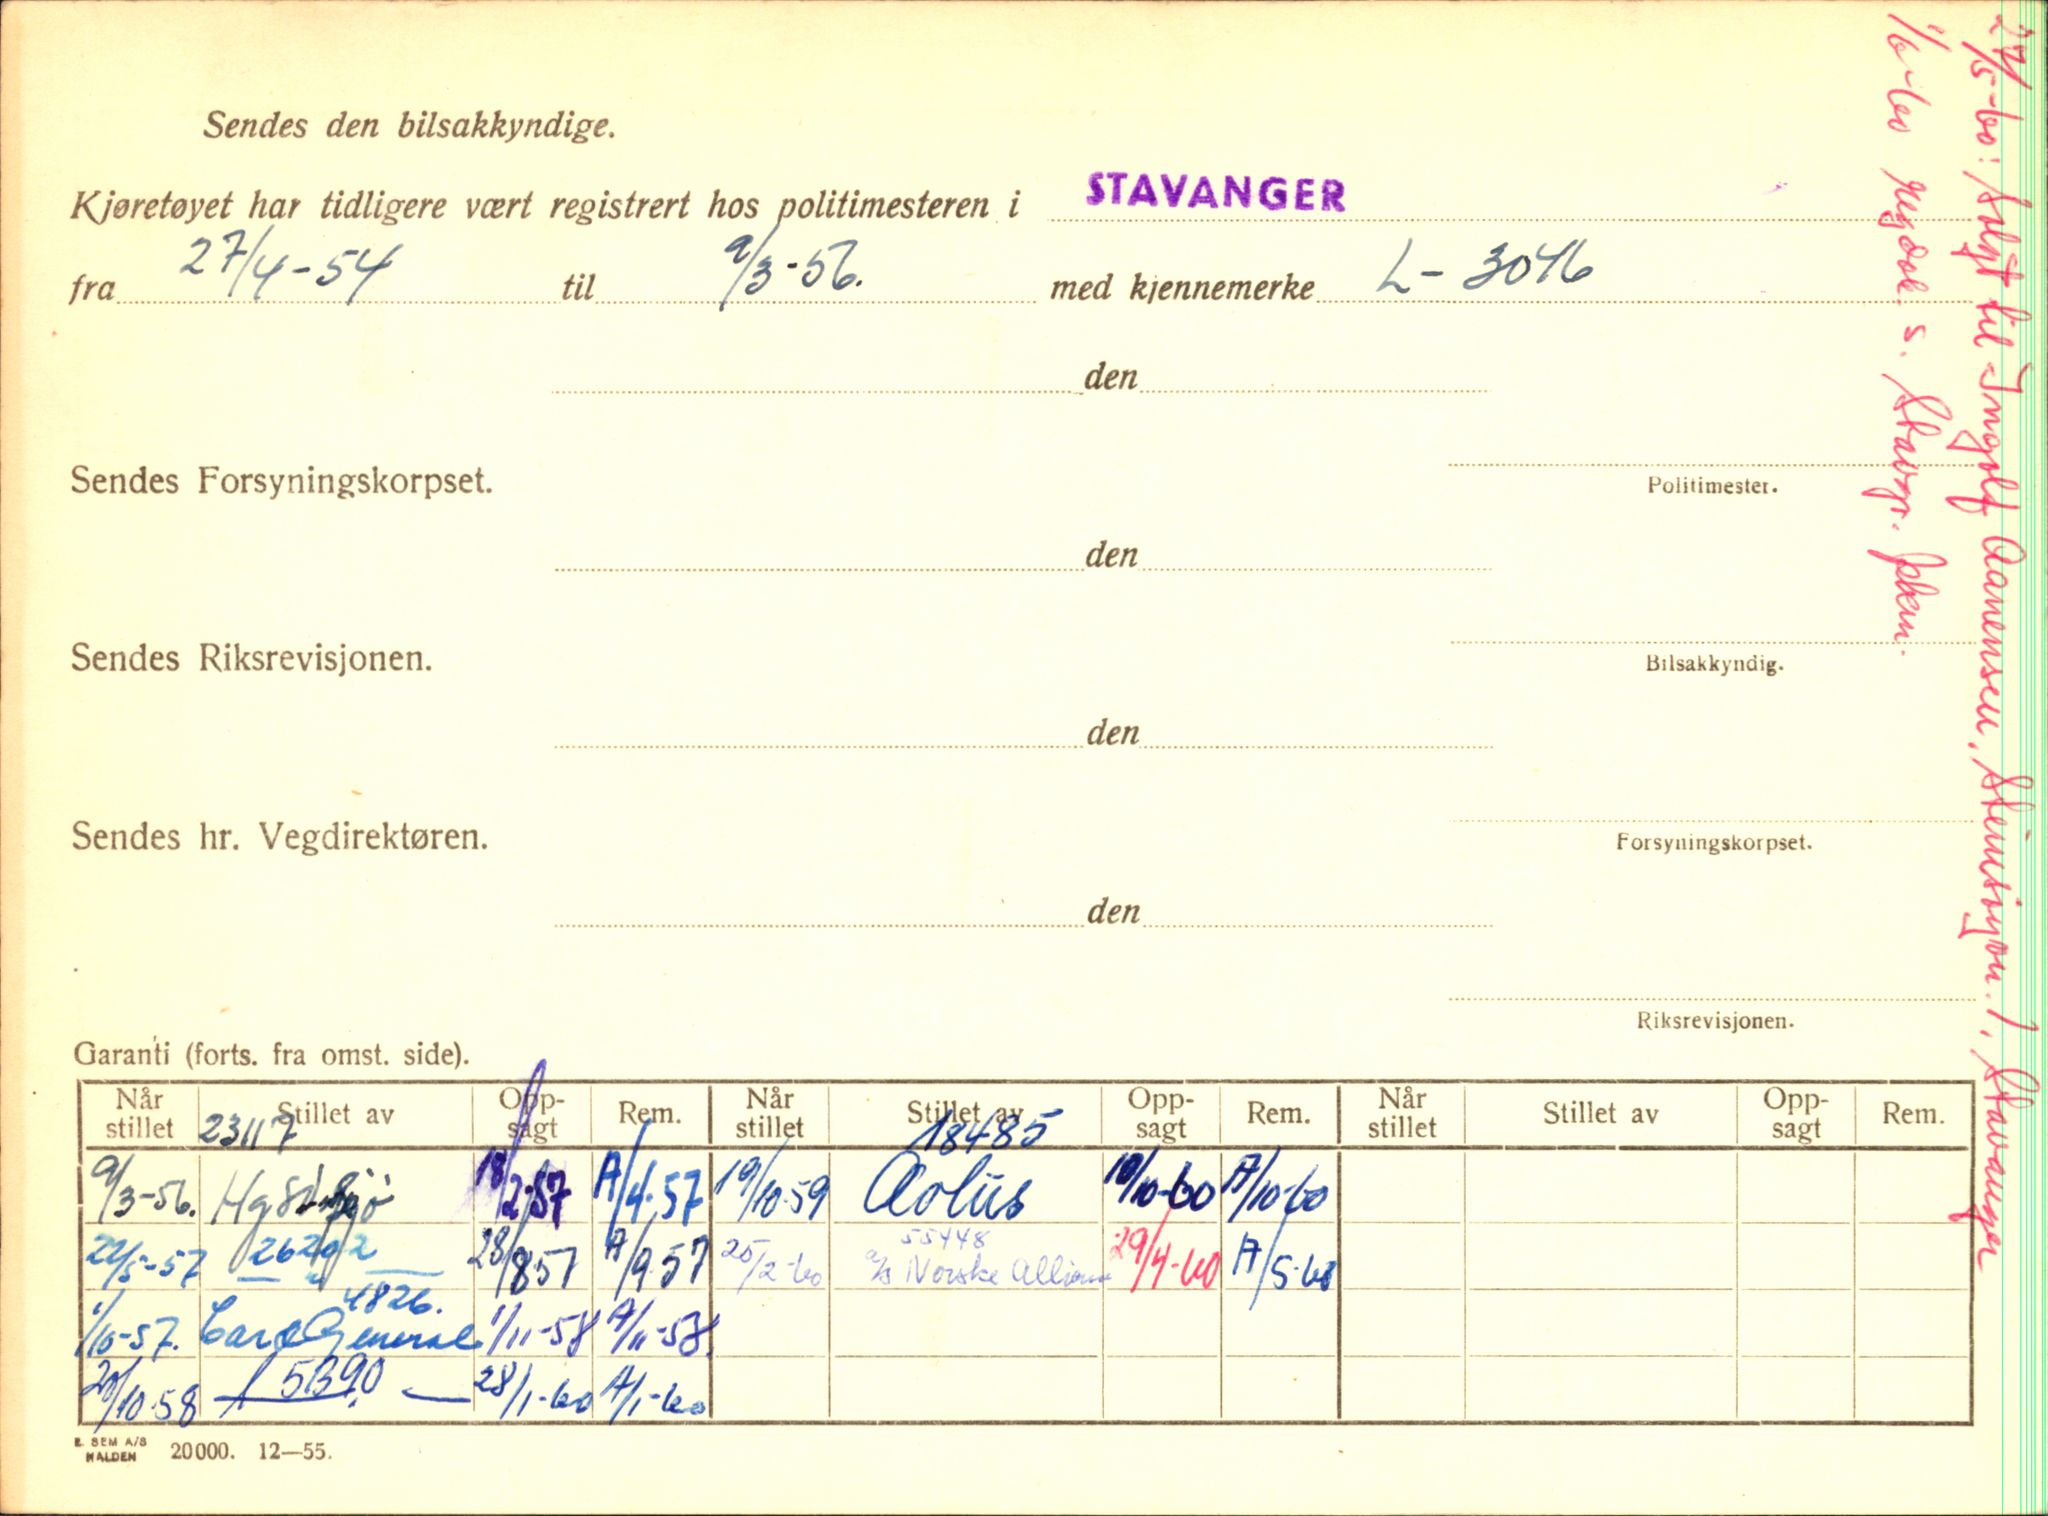 Sendes den bilsakkyndige.
Kjøretøyet har tidligere vært registrert hos politimesteren i STAVANGER
fra 27/4-54 til 9/3-56. med kjennemerke L- 3046
den
Sendes Forsyningskorpset.
Politimester.
den
Sendes Riksrevisjonen.
Bilsakkyndig.
den
Sendes hr. Vegdirektøren.
Forsyningskorpset.
den
Riksrevisjonen.
Garanti (forts. fra omst. side).
Når stillet Stillet av Opp-sagt Rem. Når stillet Stillet av Opp-sagt Rem. Når stillet Stillet av Opp-sagt Rem.
23117 18485
9/3-56. 18/2-57 A/4-57 19/10-59 Aolus 10/10-60 A/10-60
55448
22/5-57 26292 28/8-57 A/9-57 25/2-60 a/s Norske Allianse 29/4-60 A/5-60
4826.
1/10-57. Care General 1/11-58 A/11-58.
20/10-58 15390 28/1-60 A/1-60
E. SEM A/S
HALDEN 20000. 12—55.
27/5-60: Solgt til Ingolf Aanensen, Steinsøyvn. 1, Stavanger
1/6-60 s. Stavgr.